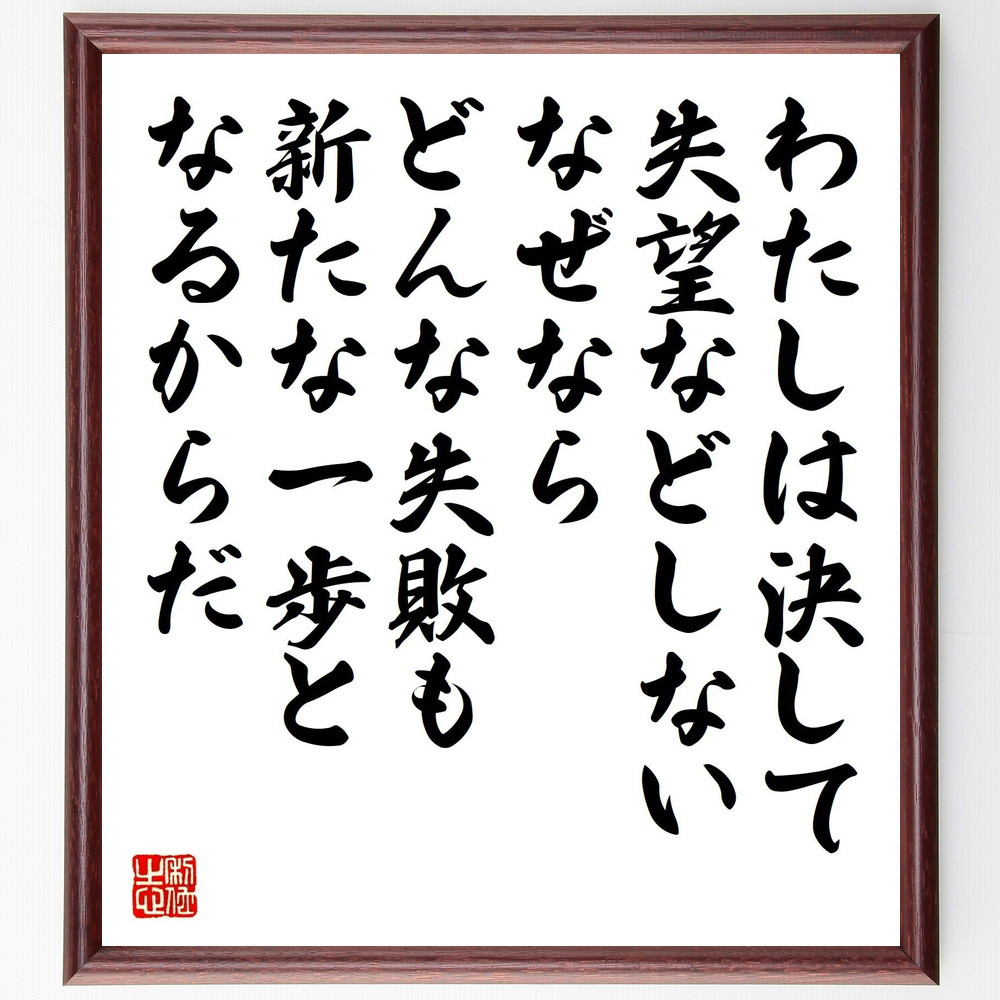 わたしは決して
失望などしない
なぜなら
どんな失敗も
新たな一歩と
なるからだ